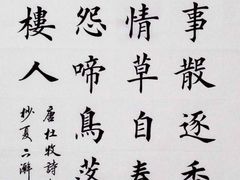 事散逐香
情草自春
怨啼鳥落
樓人
唐杜牧詩
杪夏